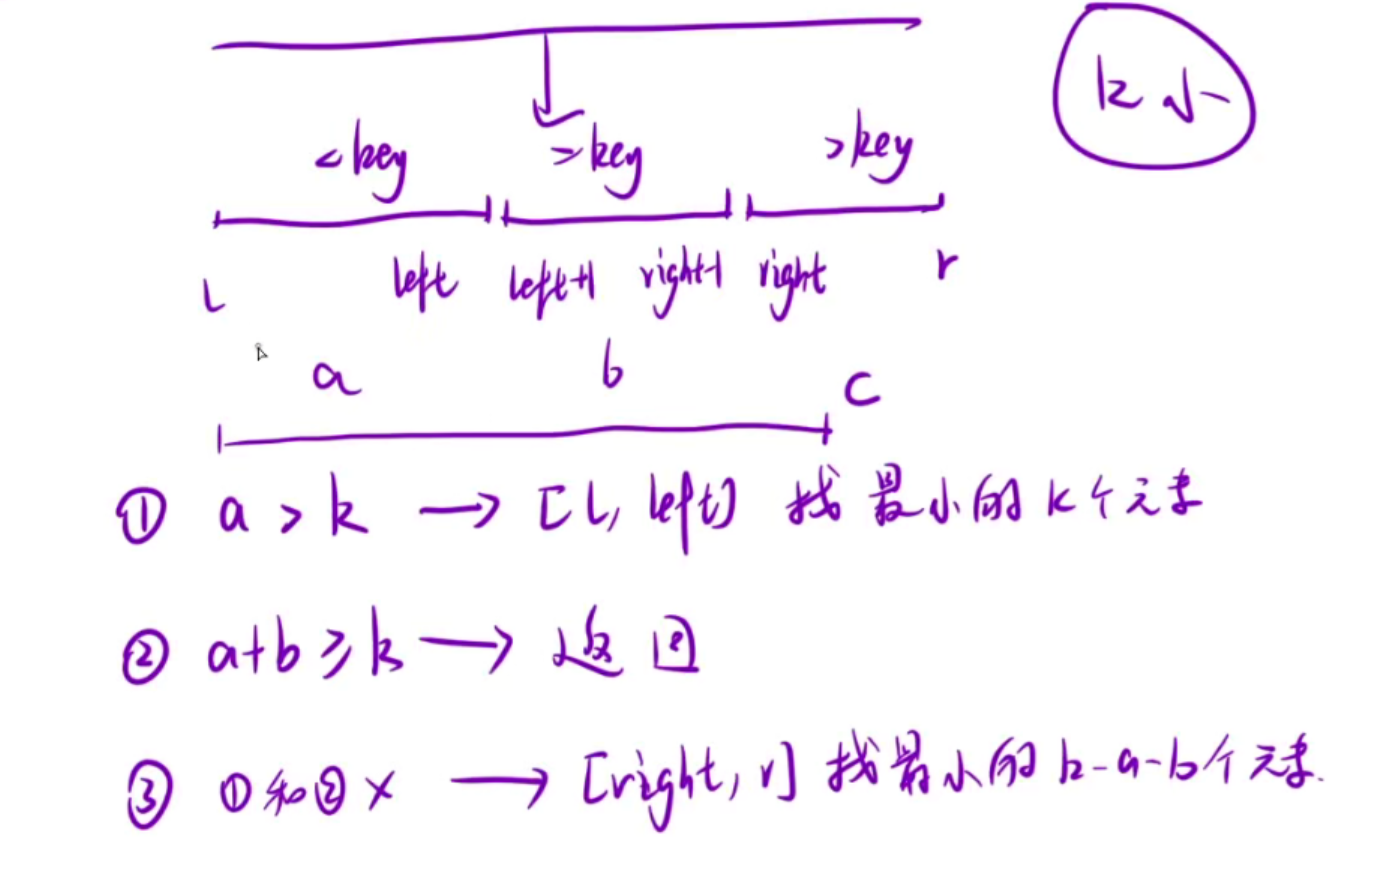 k小
<key =key >key
l left left+1 right-1 right r
a b c
① a > k → [l, left] 找最小的k个元素
② a+b ≥ k → 返回
③ ①和②× → [right, r] 找最小的k-a-b个元素.